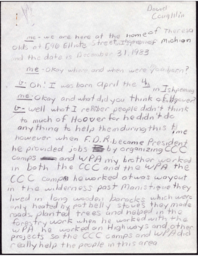 Dawn
Coughlin
Jv - we are here at the home of Theresa
out at Elb Ellots street Ishpeming
at this date is October 31, 1983
me: Okay where and were you born?
Jv: Oh! I was born April the 4
in Ishpeming
me: Okay and what did you think of Hoover?
Jv - well what I remember people didn't think
to much of Hoover for he didn't do
anything to help them during this time
however when F.D.R became President
he provided jobs by organizing CCC
camps and WPA my brother worked
in both the CCC and the WPA the
CCC camp he worked at was way out
in the wilderness past Manistique they
lived in long wooden barracks which were
only heated by pot belly stoves they made
roads planted trees and helped in the
forestry work when he worked with the
WPA he worked on Highways and other
projects. So the CCC camps and WPA did
really help the people in this area